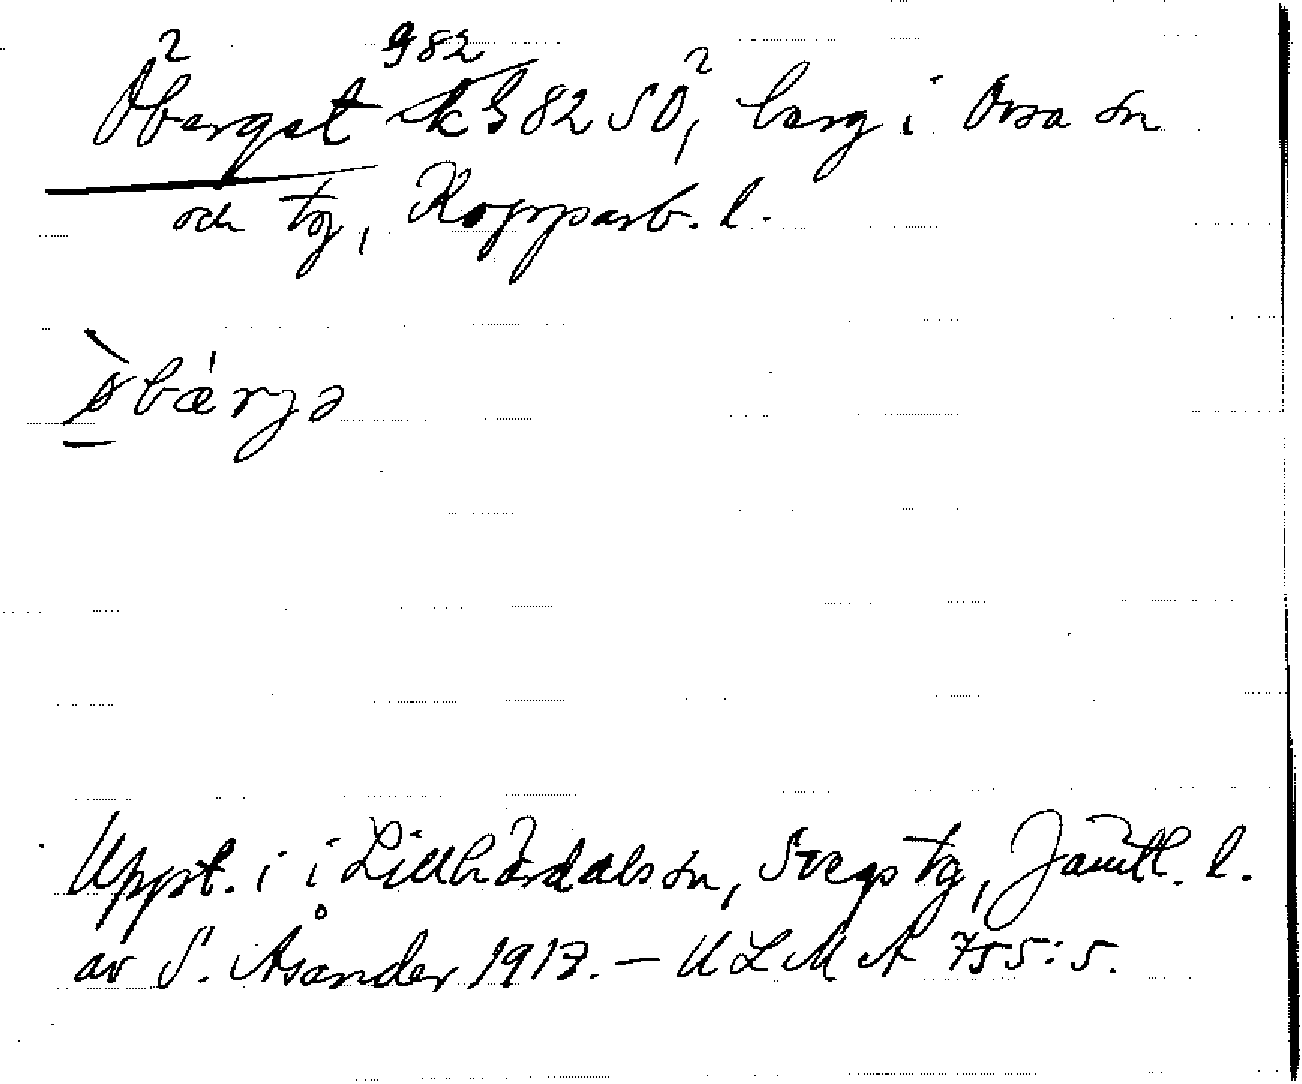 982
Öberget k982 SO, berg i Orsa sn
och tg, Kopparb. l.
öbærjə
Uppt. i i Lillhärdals sn, Svegs tg, Jämtl. l.
av S. Åsander 1917. – ULMA 755:5.